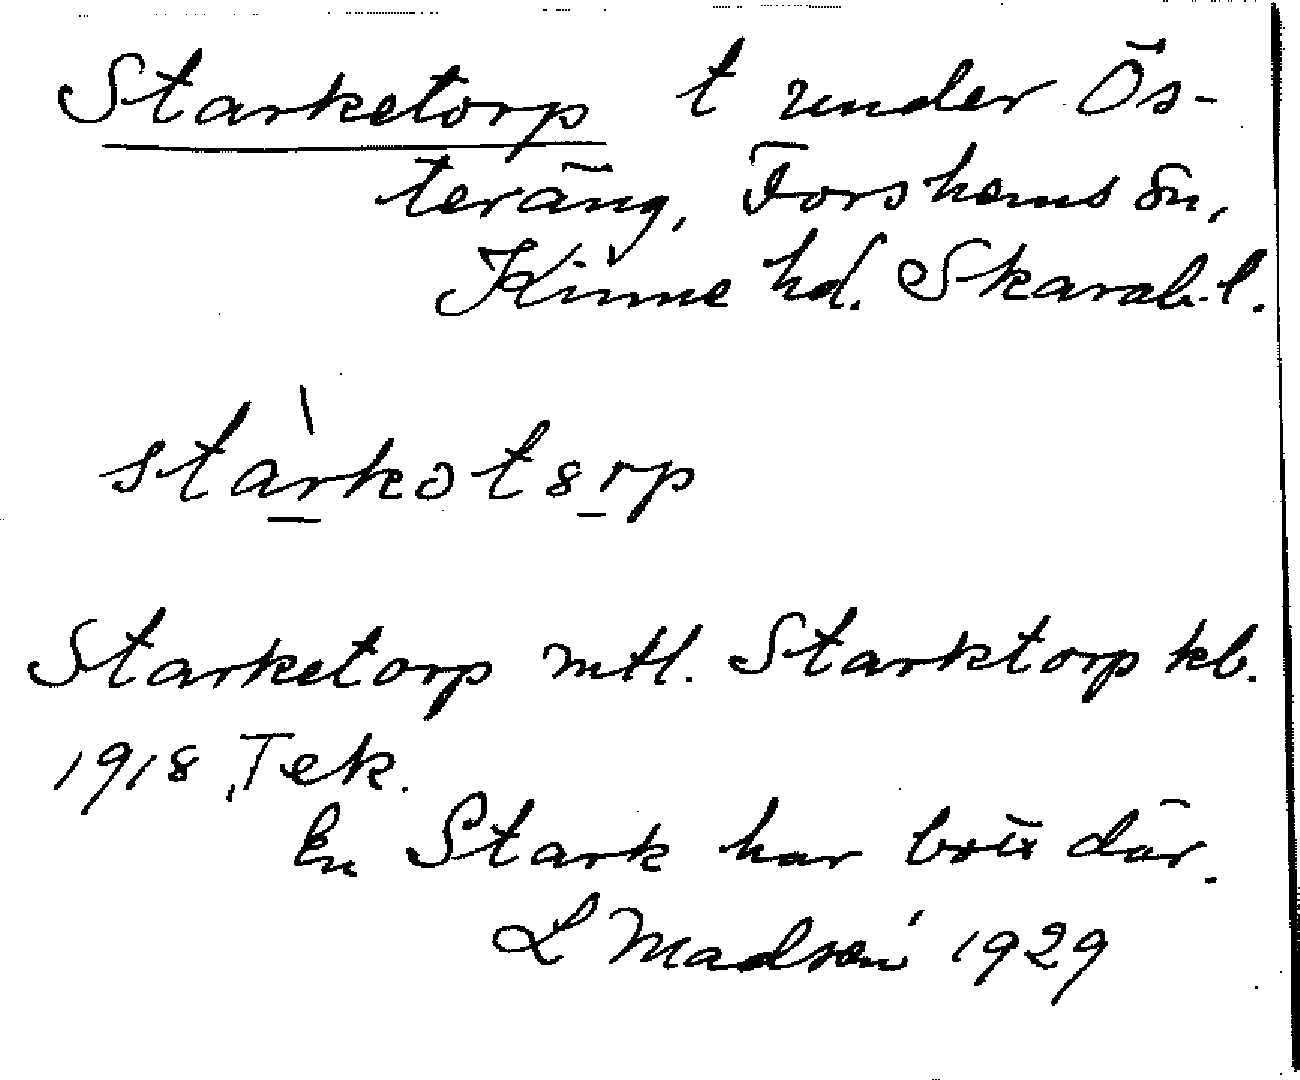 Starketorp t under Ös-
teräng, Forshems sn,
Kinne hd. Skarab. l.
stàrkətɞrp
Starketorp mtl. Starktorp kb.
1918, Tek.
En Stark har bott där.
L Madsén 1929